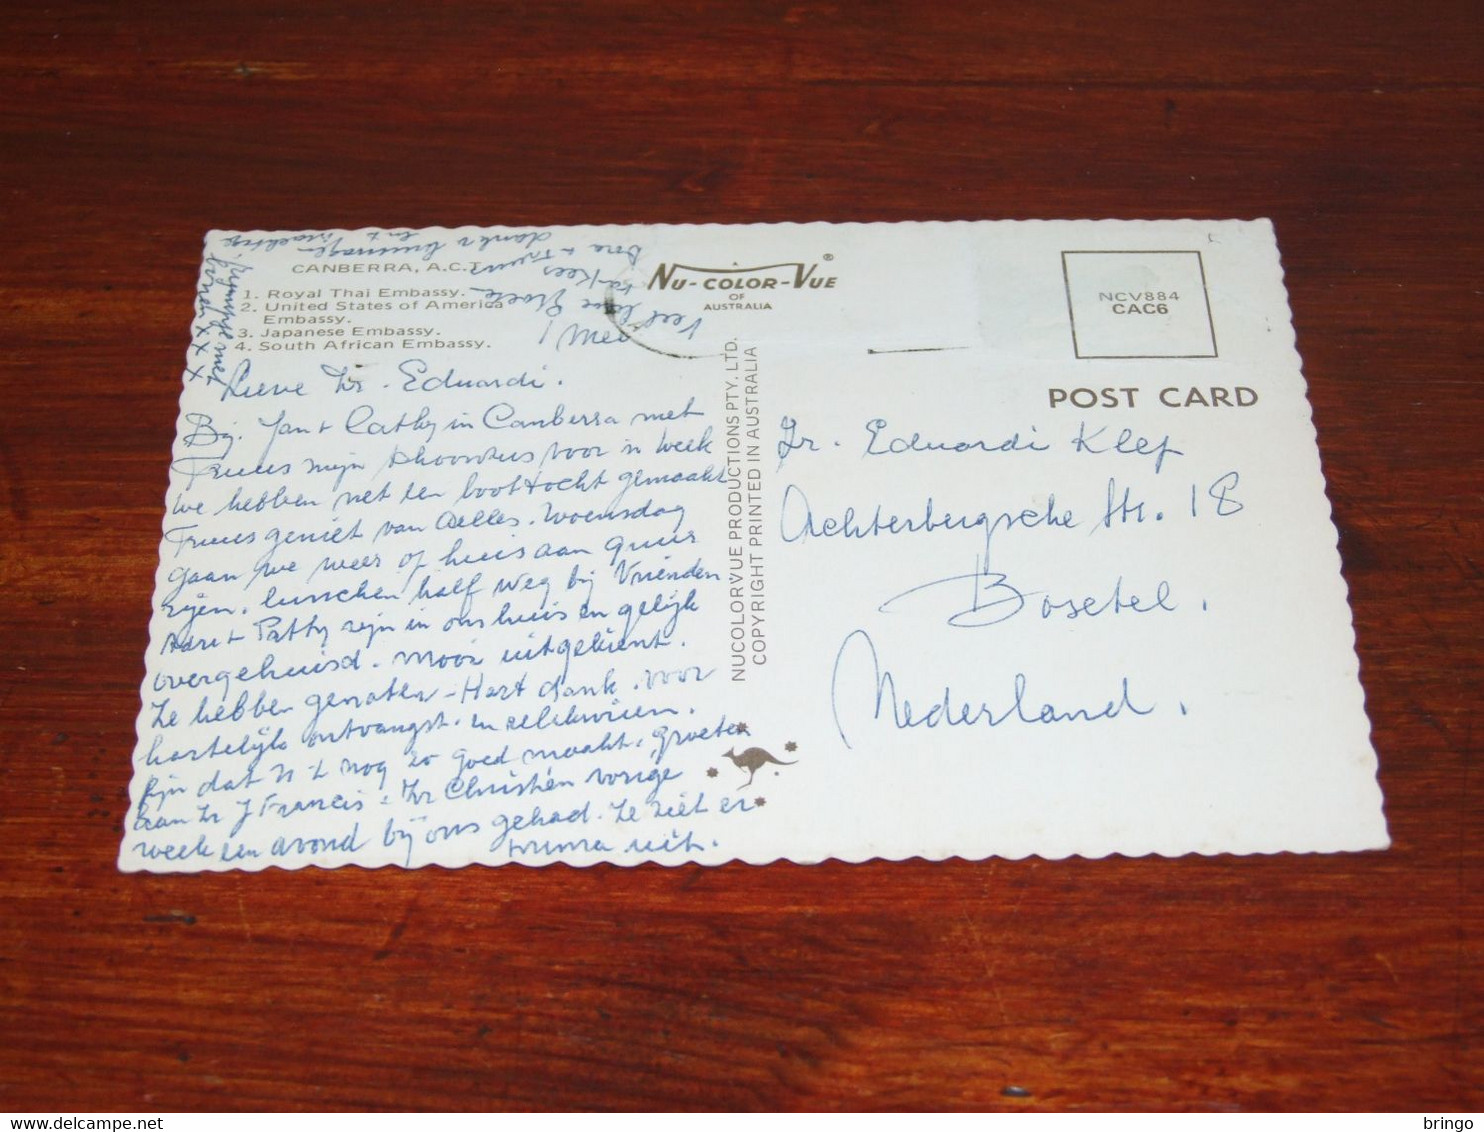 CANBERRA, A.C.T.
1. Royal Thai Embassy.
2. United States of America
Embassy.
3. Japanese Embassy.
4. South African Embassy.
NU-COLOR-VUE®
OF
AUSTRALIA
NCV884
CAC6
POST CARD
NUCOLORVUE PRODUCTIONS PTY. LTD.
COPYRIGHT PRINTED IN AUSTRALIA
Veel lieve
Dora + Truus
x x x
Lieve Zr. Eduardi.
Bij Jan + Cathy in Canberra met
Truus mijn voor 'n week
we hebben net een boottocht gemaakt
Truus geniet van alles. Woensdag
gaan we weer op huis aan 9 uur
rijen. lunschen half weg bij Vrienden
+ Patty zijn in ons huis en gelijk
overgehuisd. Mooi uitgekient.
Ze hebben genoten - Hart dank voor
hartelijk ontvangst.
fijn dat U 't nog zo goed maakt. Groeten
aan Zr J Francis = Zr Christien vorige
week een avond bij ons gehad. Ze ziet er
prima uit.
Zr. Eduardi Klep
Achterbergsche Str. 18
Boxtel.
Nederland.
© delcampe.net
bringo